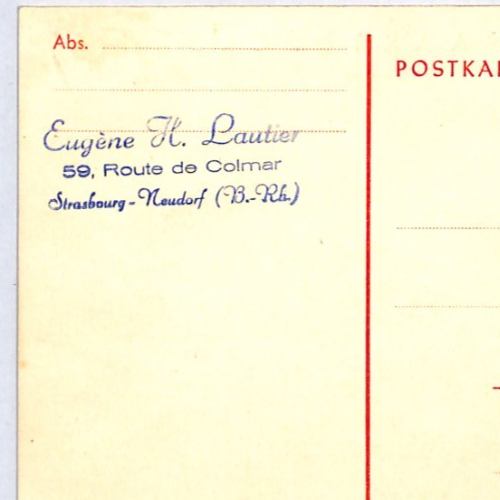 Abs.
POSTKA
Eugène H. Lautier
59, Route de Colmar
Strasbourg-Neudorf (B.-Rh.)